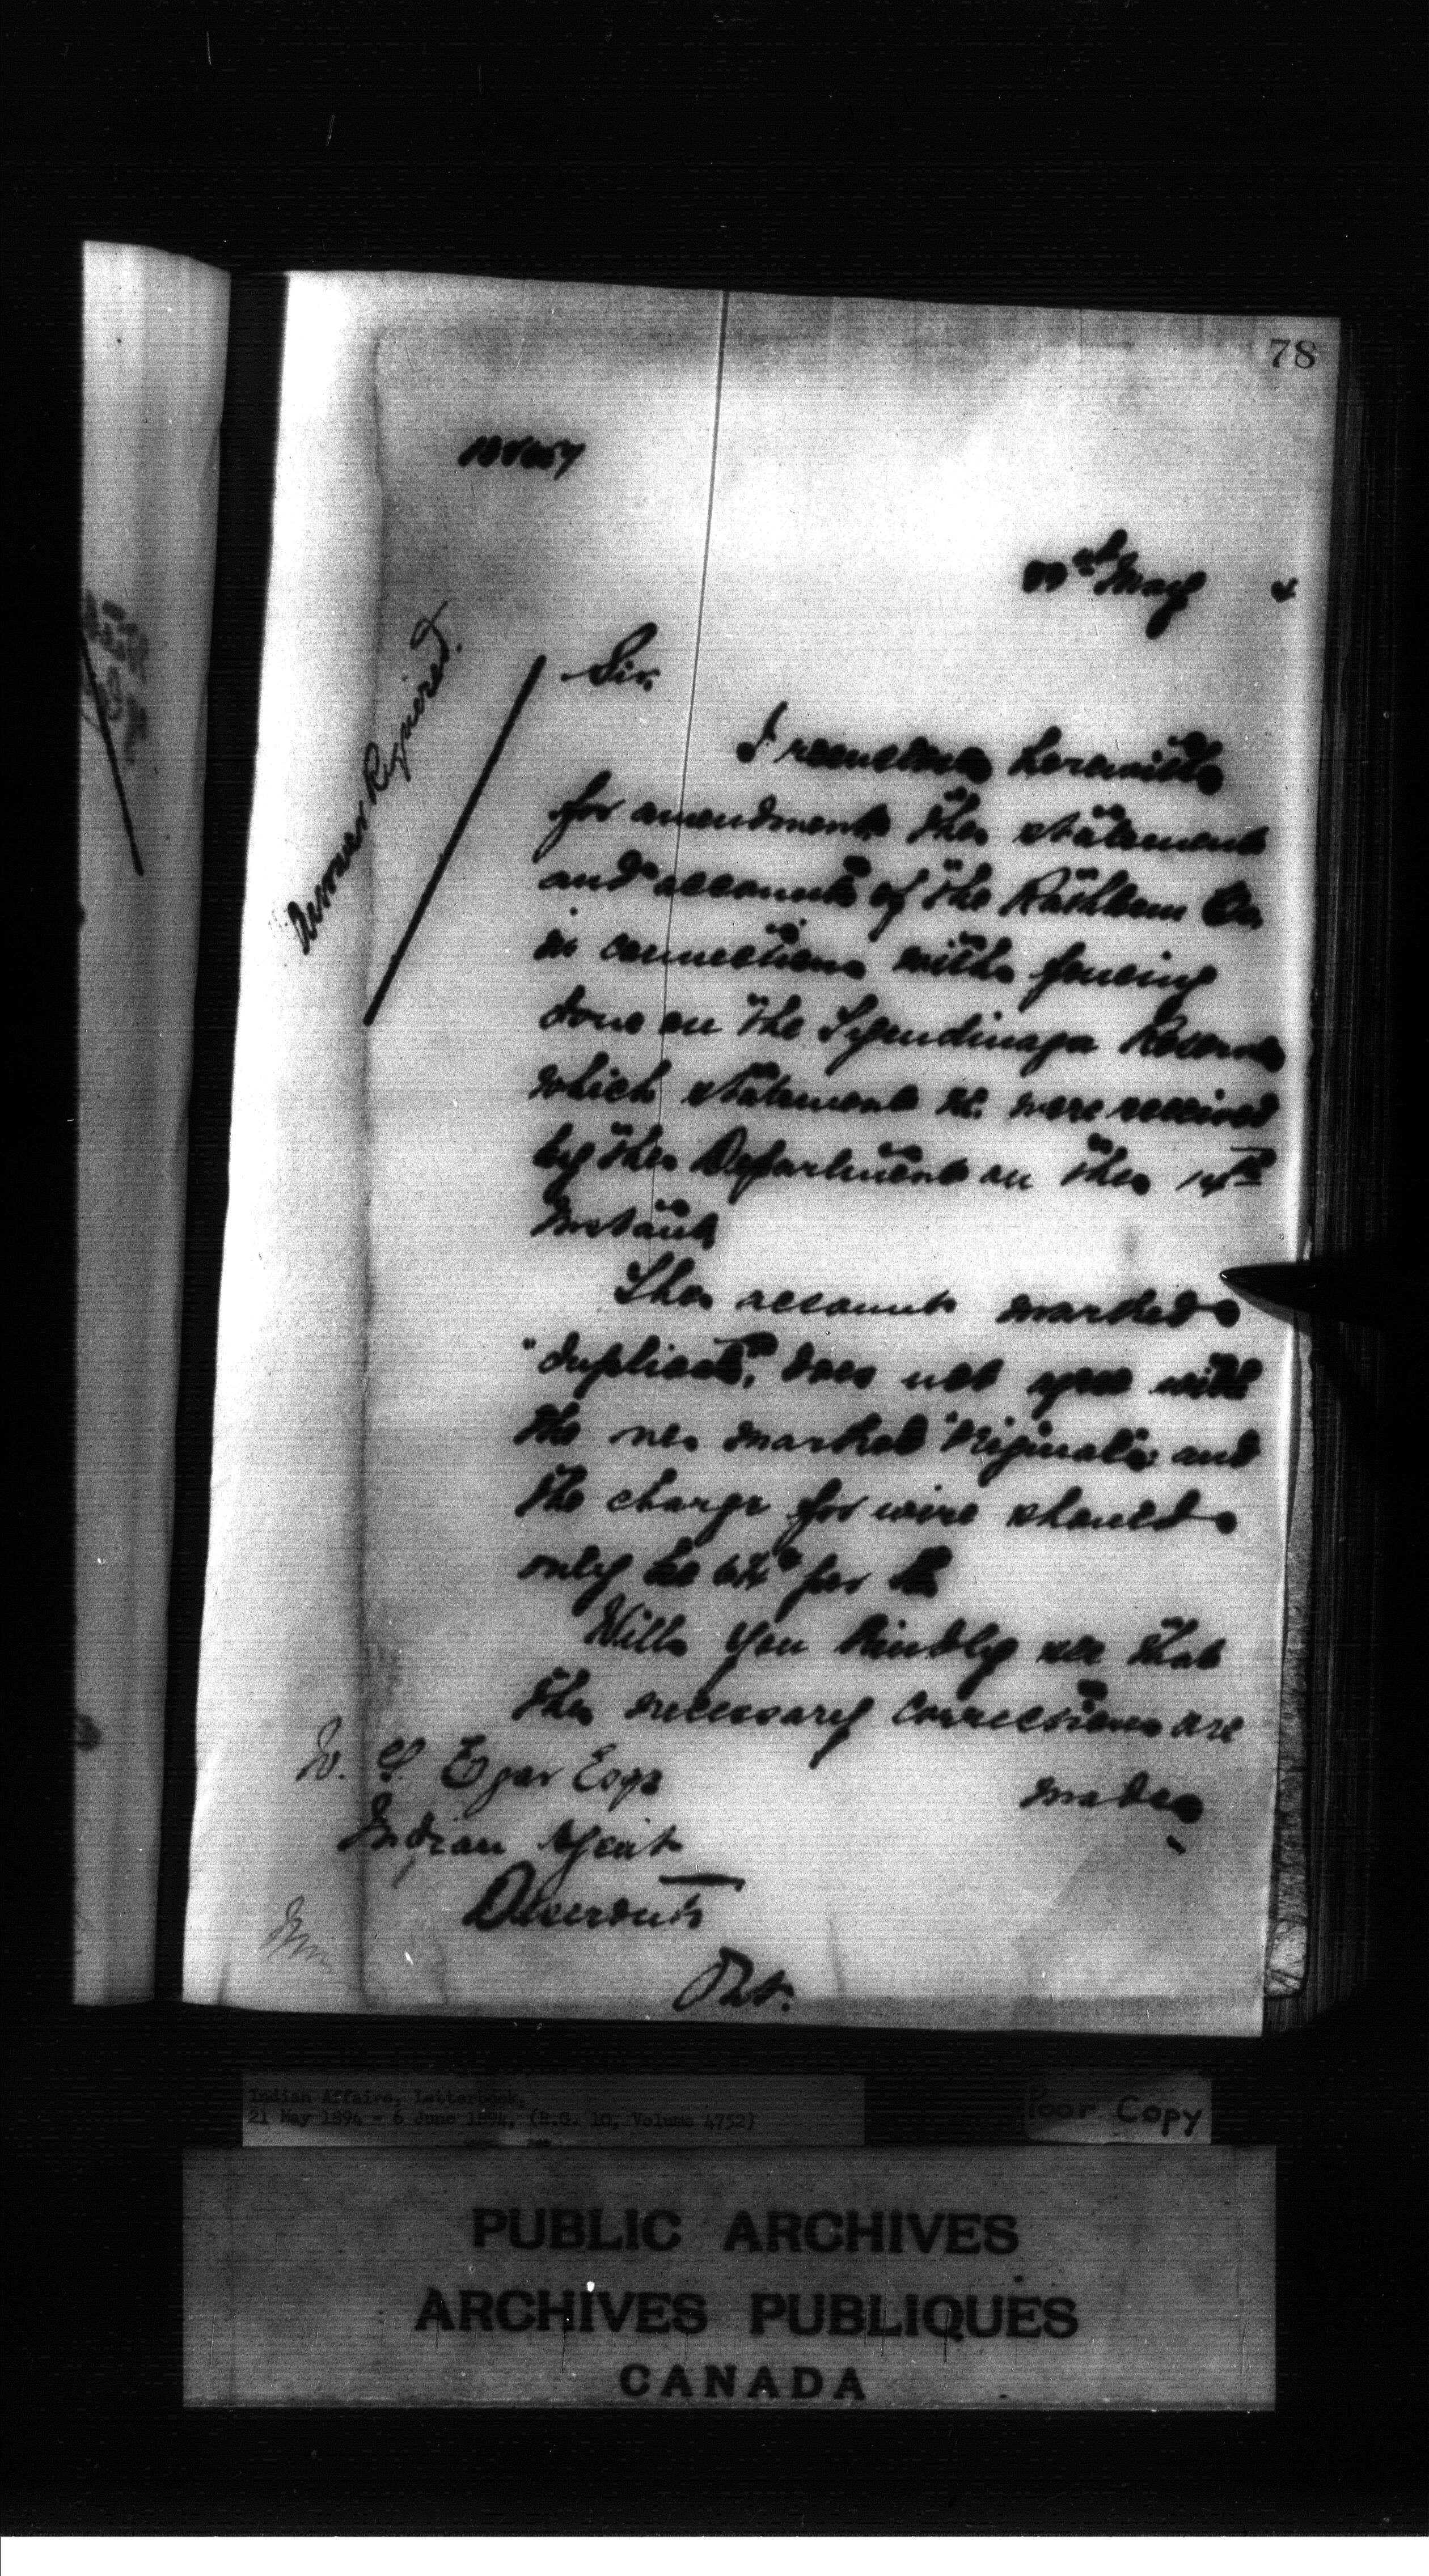 78
22nd May 4
Answer Required.
Sir,
I
herewith
for amendment the statement
and accounts of the Rathbun Co.
in connection with fencing
done on the Tyendinaga Reserve
which statement &c. were received
by the Department on the 14th
instant.
The account marked
"duplicate", does not agree with
the one marked "Original" and
the charge for wire should
only be per lb.
Will you kindly see that
the necessary corrections are
made
W. Egar Esqr
Indian Agent
Deseronto
Ont.
Indian Affairs, Letterbook,
21 May 1894 - 6 June 1894, (R.G. 10, Volume 4752)
Poor Copy
PUBLIC ARCHIVES
ARCHIVES PUBLIQUES
CANADA